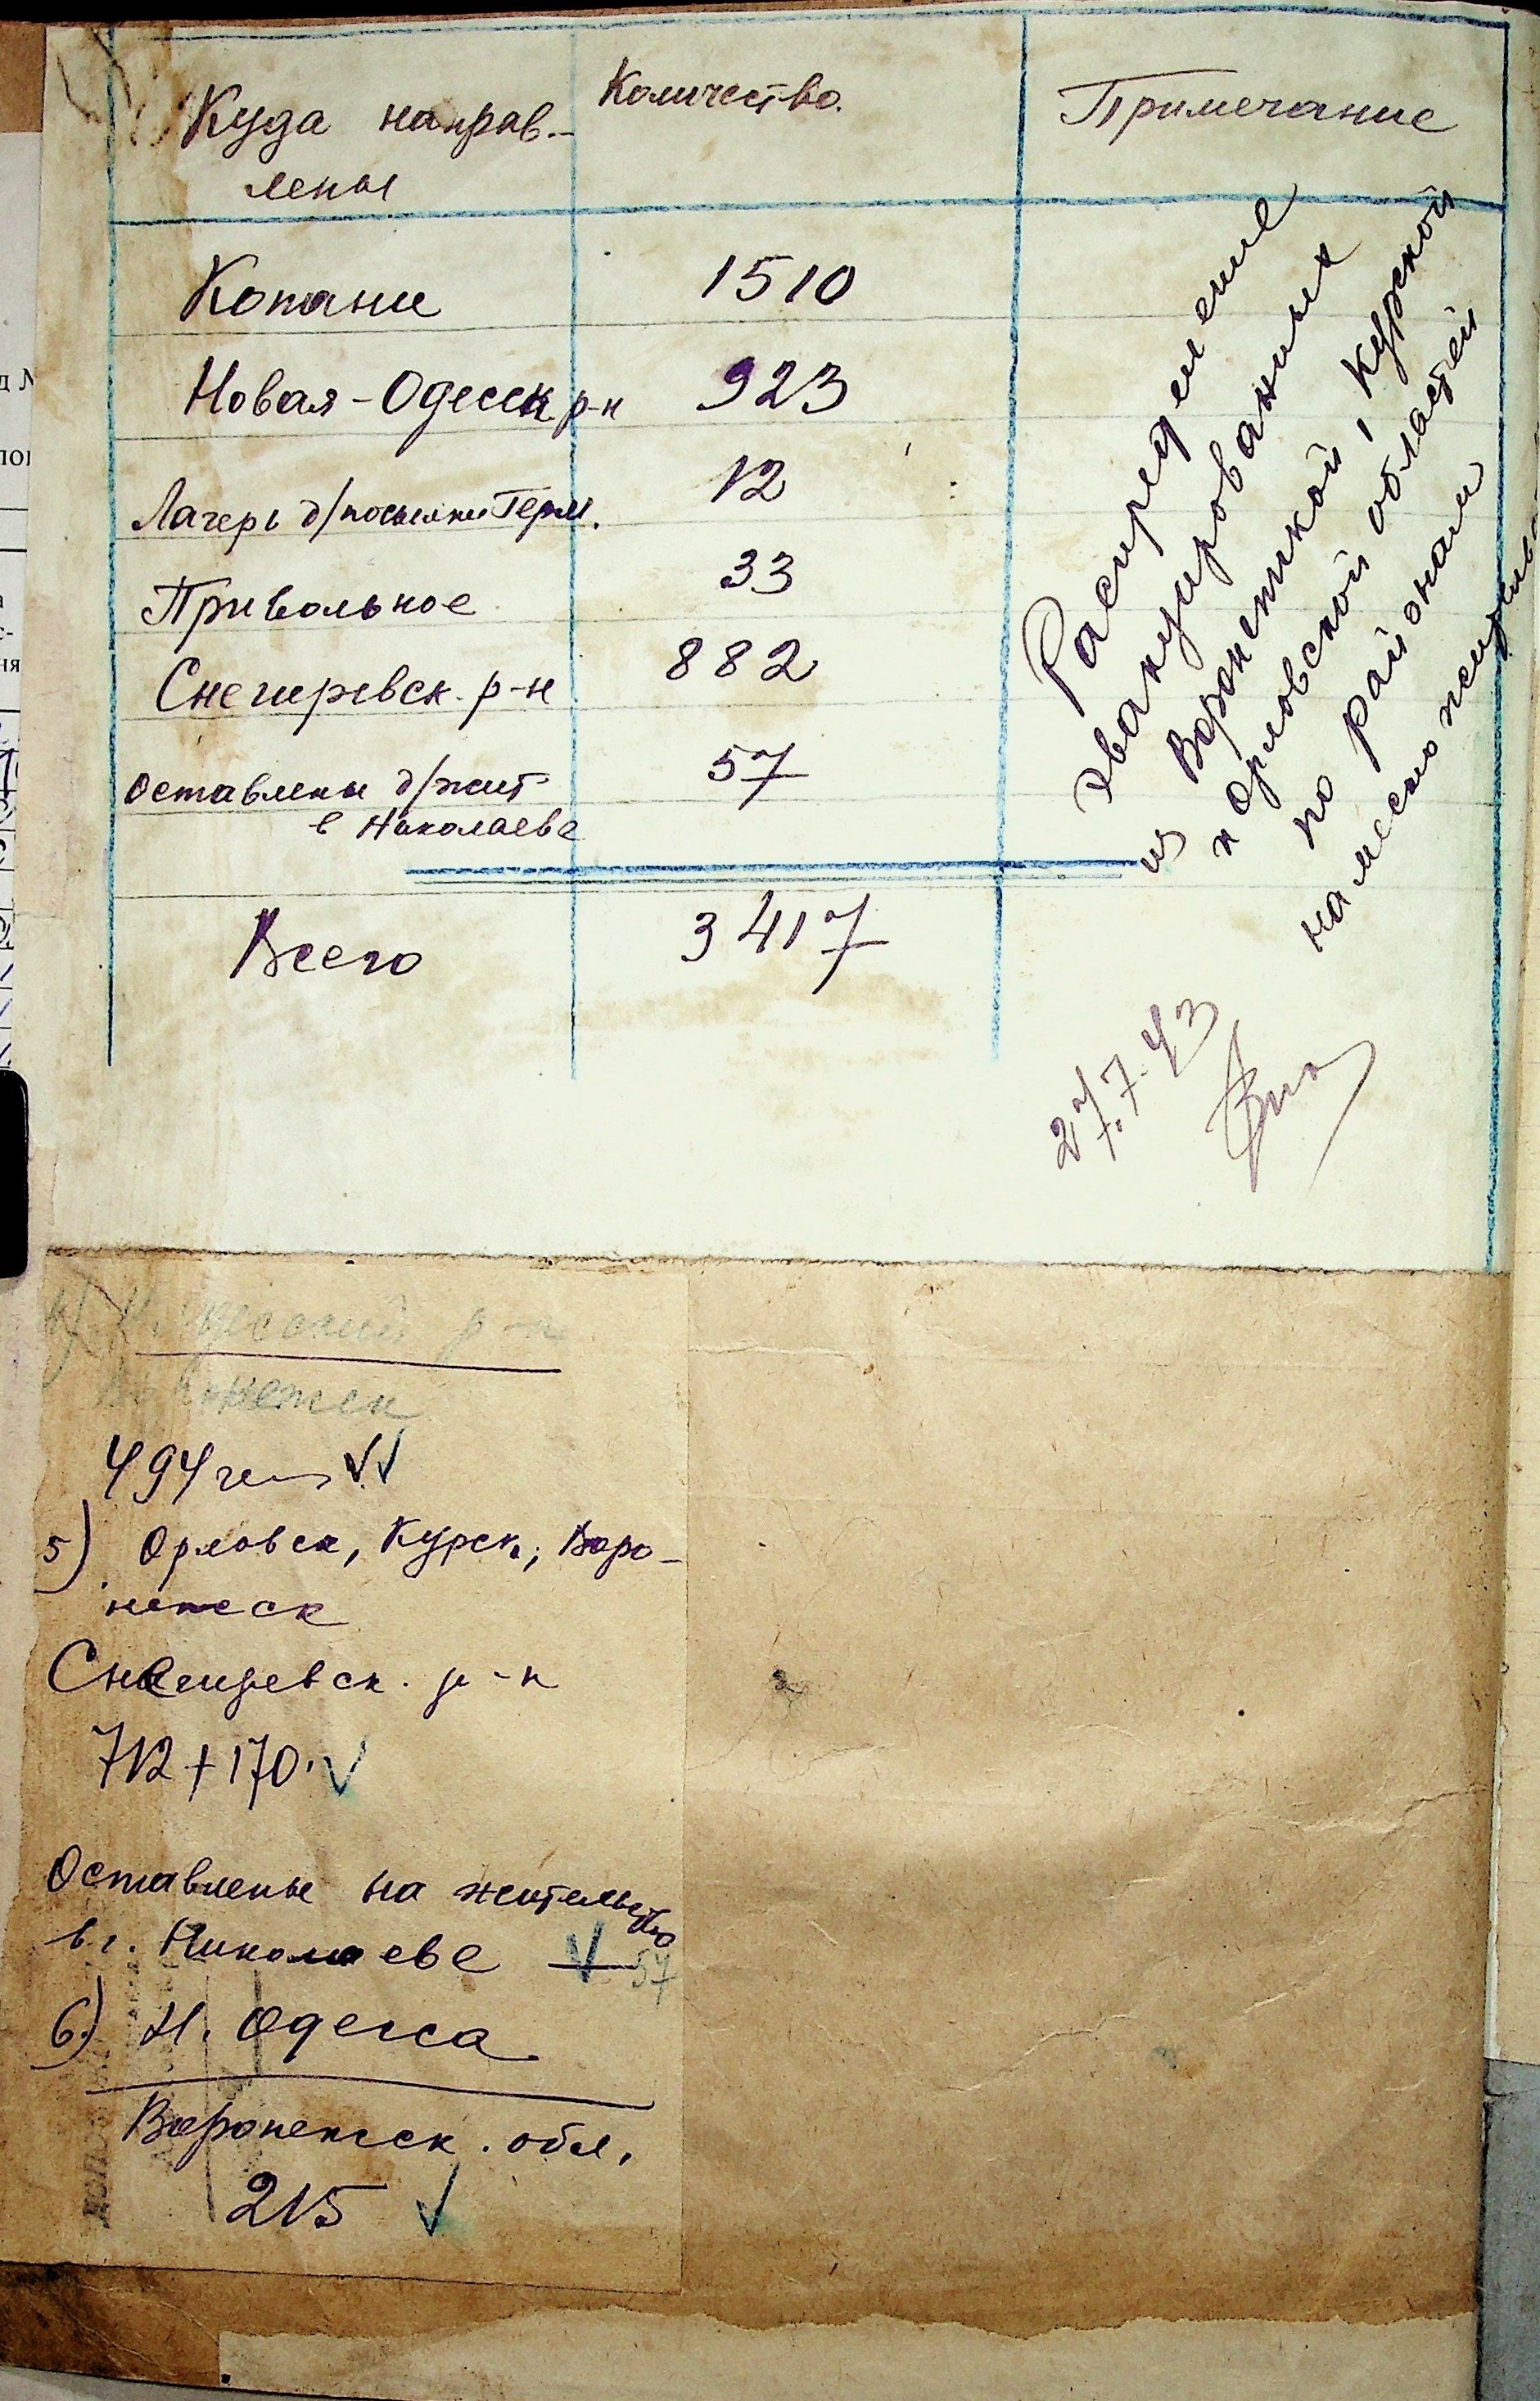 Куда направ-
лены
Количество.
Примечание
Копани 1510
Новая-Одесск р-н 923
Лагерь д/посылки Герм. 12
Привольное 33
Снегиревск. р-н 882
Оставлены д/жит
в Николаеве 57
Всего 3417
Распределение
эвакуированных
из Воронежской, Курской
и Орловской областей
по районам
на место
27.7.43
Одесский р-н
Воронежск
494 чел
5) Орловск, Курск, Воро-
нежск
Снегиревск. р-н
712+170.
Оставлены на жительство
в г. Николаеве 57
6) Н. Одесса
Воронежск. обл.
215